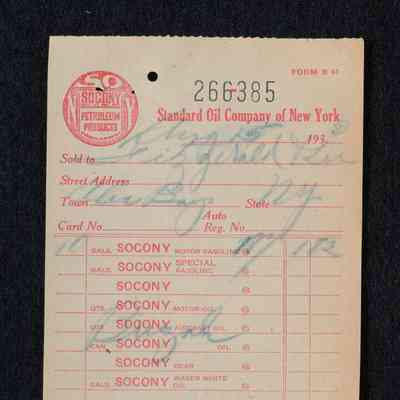 SO
SOCONY
N Y
PETROLEUM
PRODUCTS
FORM B 61
266385
Standard Oil Company of New York
193
Sold to Fitzgerald
Street Address
Town Alex Bay State NY
Auto
Card No. Reg. No.
10 GALS. SOCONY MOTOR GASOLINE @
GALS. SOCONY SPECIAL GASOLINE @
SOCONY @
QTS. SOCONY MOTOR OIL @
QTS. SOCONY AIRCRAFT OIL @
CAN SOCONY OIL @
SOCONY GEAR @
GALS. SOCONY WATER WHITE OIL @